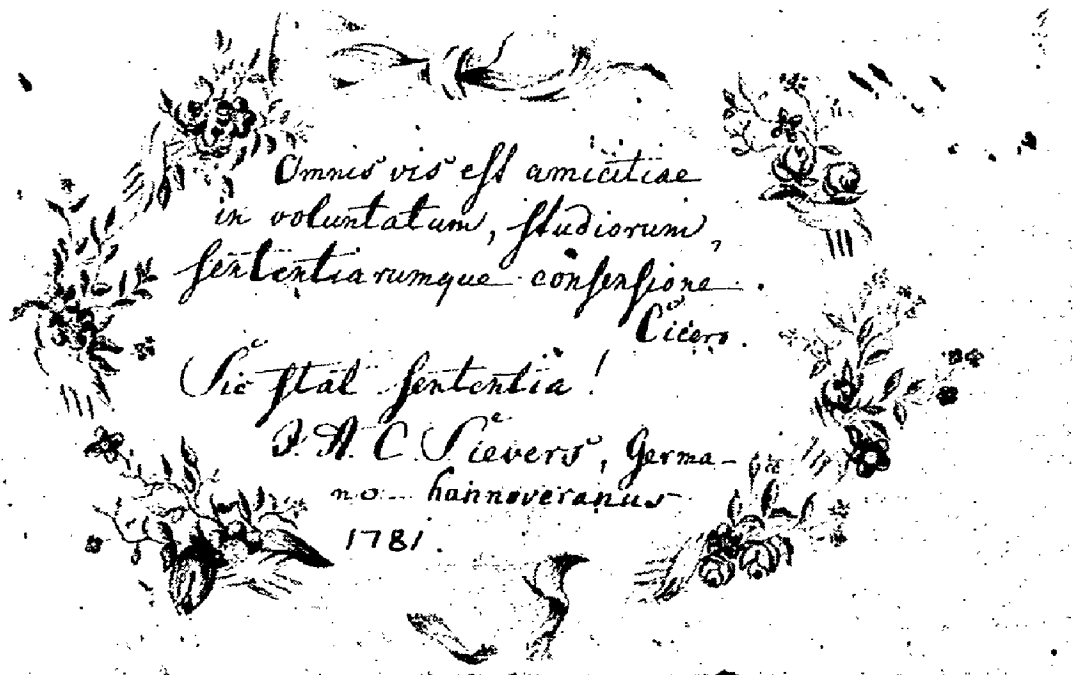 Omnis vis est amicitiae
in voluntatum, studiorum,
sententiarumque consensione.
Cicero.
Sic stat sententia!
J. A. C. Sievers, Germa-
no-hannoveranus
1781.